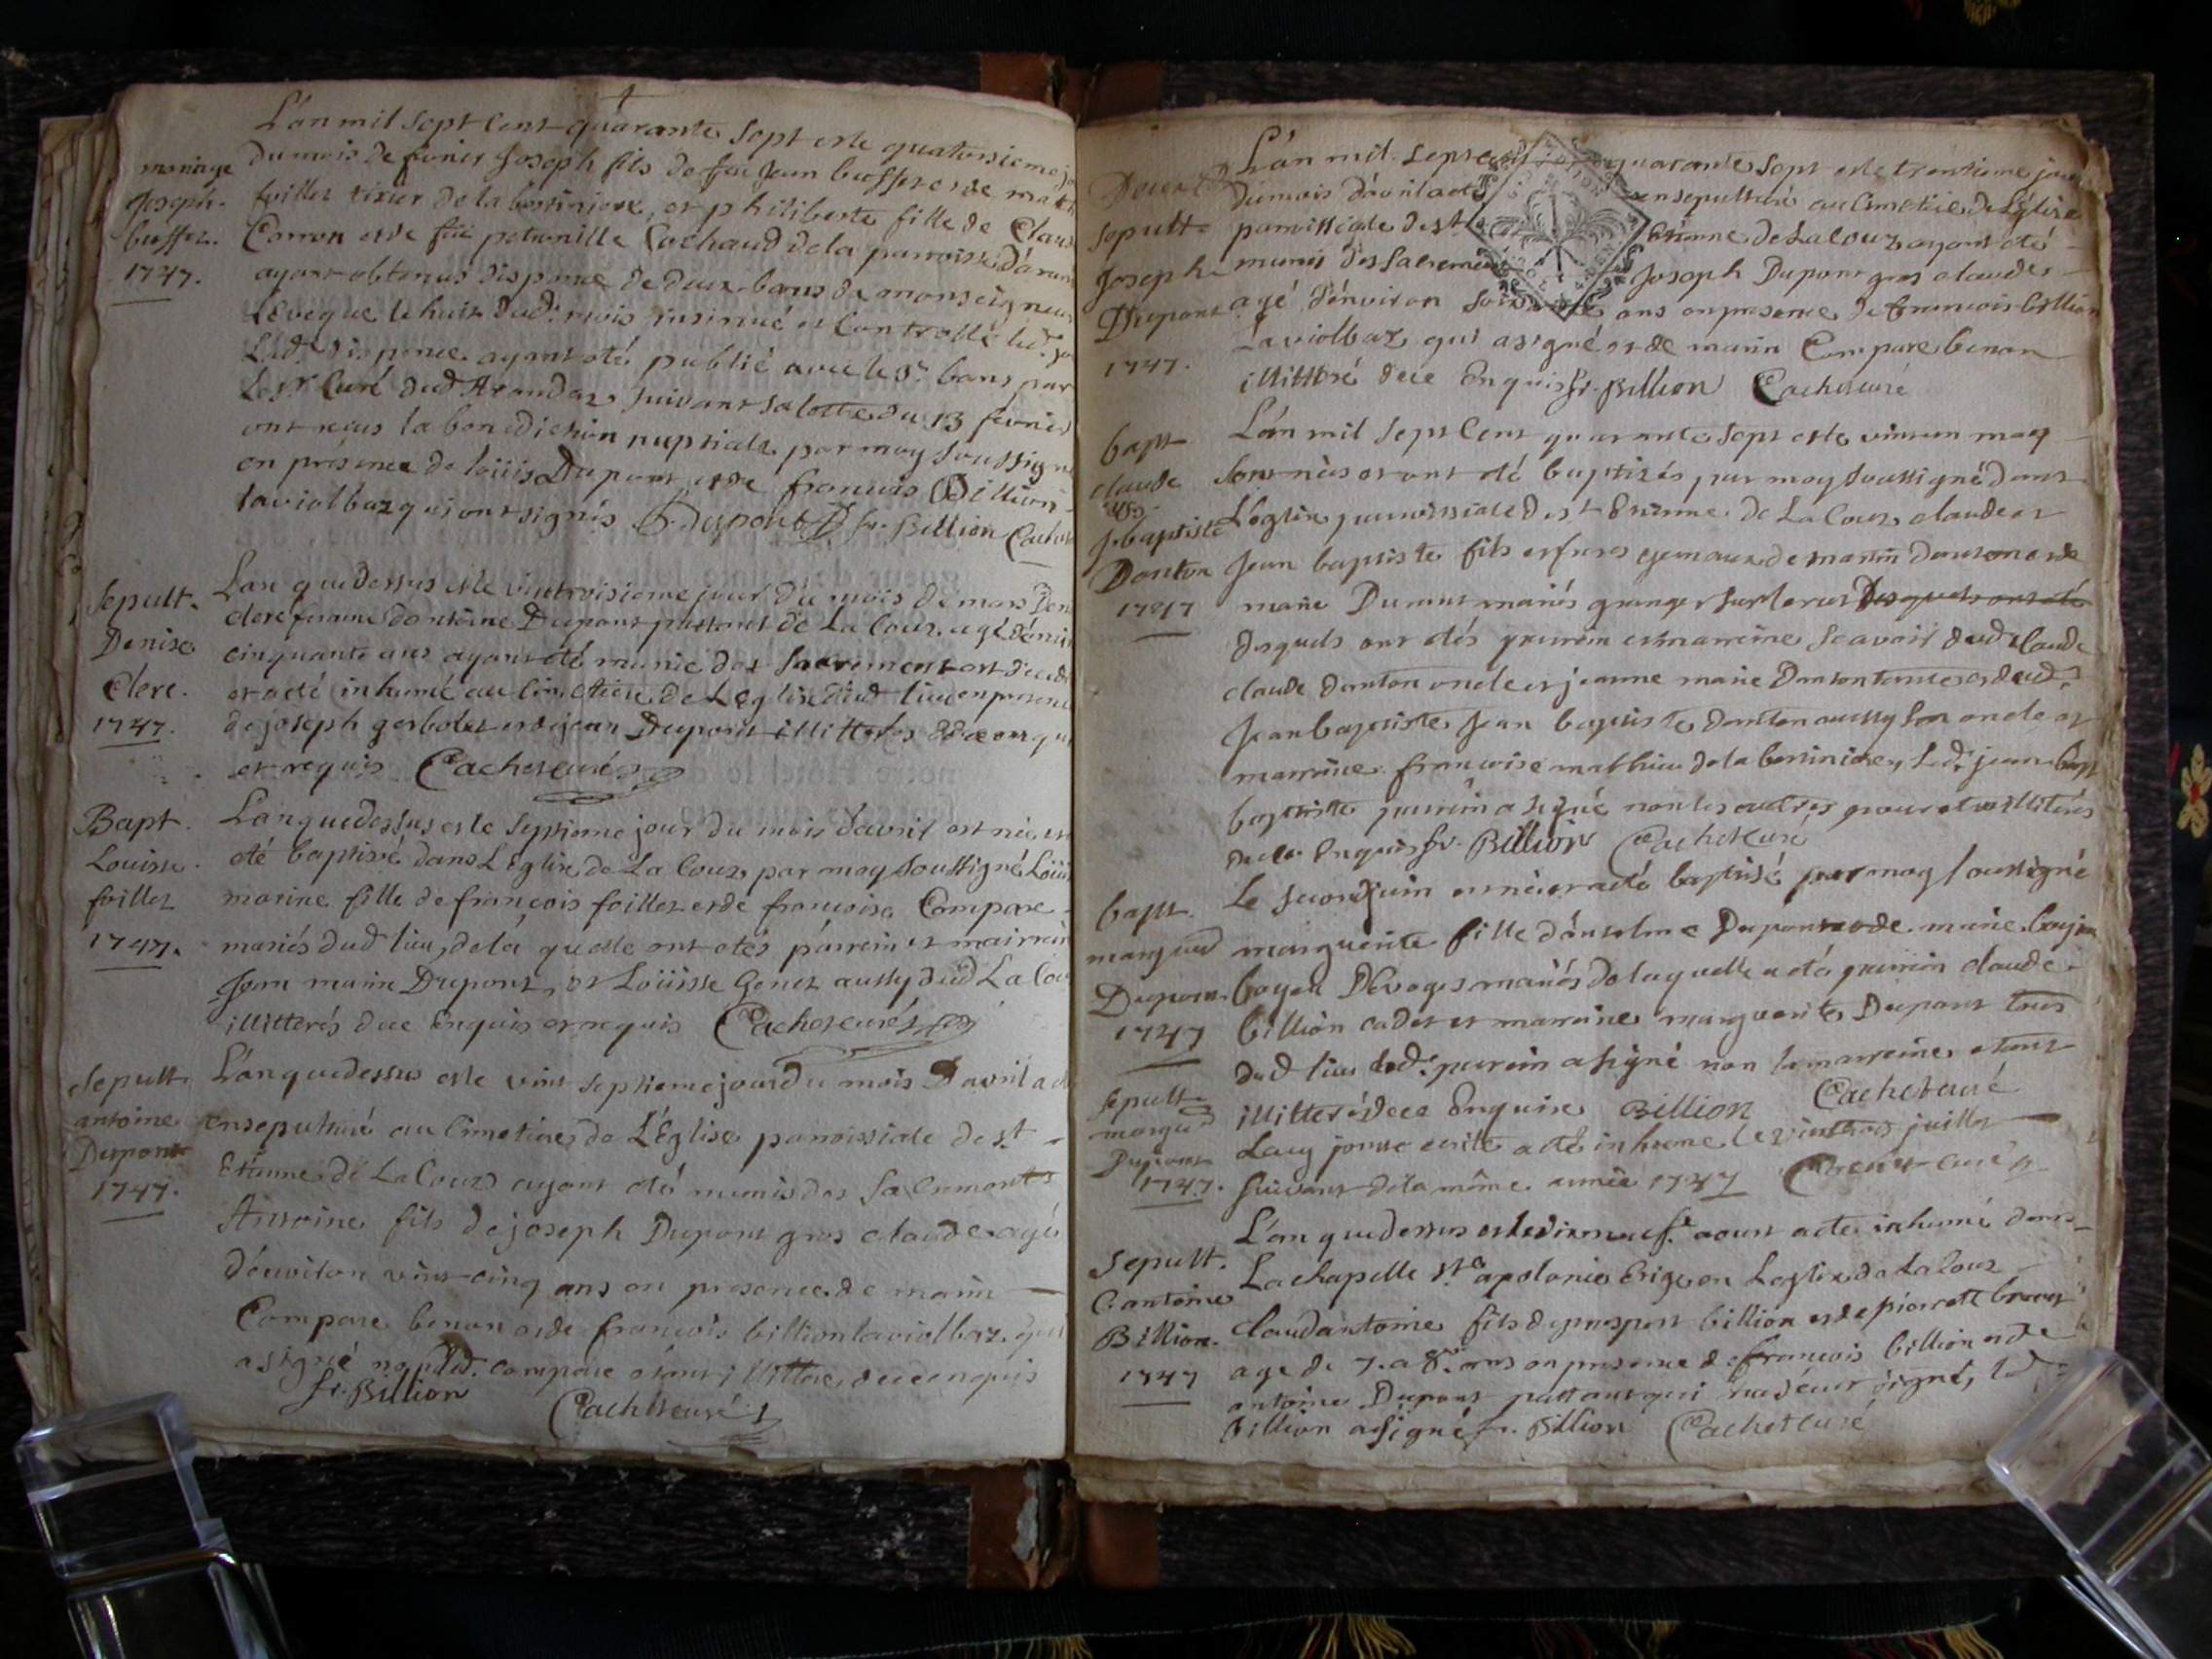 mariage
Joseph
buffet.
1747.
L'an mil sept cent quarante sept et le quatorsieme
du mois de fevrier Joseph fils de feu Jean buffet et de
foillet tixier de la bertiniere, et philiberte fille de Clau
Carron et de feüe petronille Cochaud de la parroisse d'aran
ayant obtenus dispence de deux bans de monseigneur
L'evêque le huit dud. mois insinué et Controllé led.
Lad. dispence ayant eté publié avec le 3e bans par
Le sr Curé dud Arandas suivant sa lettre du 13 fevrier
ont reçus la benediction nuptiale par moy Soussigné
en présence de loüis Dupont et de francois Billion
laviolbaz qui ont signés L. Dupont fr. Billion Cachet
Sepult.
Denise
Clerc.
1747.
L'an que dessus et le vint troisieme jour du mois de mars Den
clerc femme d'antoine Dupont pattant de La Couz, agé d'envi
cinquante ans ayant eté munie des Sacrements est decedé
et a eté inhumé au Cimetiere de L'eglise dud lieu en presence
de joseph gerbolet et de jean Dupont illitterés de ce enquis
et requis Cachet curé
Bapt.
Louise
foillet
1747.
L'an que dessus et le septieme jour du mois d'avril est née et
eté baptisé dans L'eglise de La Couz, par moy soussigné Loüis
marine fille de françois foillet et de françoise Compare
mariés dud lieu, de la quelle ont etés parrein et mairrein
Jean marin Dupont, et Loüisse Genet aussy dud La Cou
illitterés de ce enquis et requis Cachet curé
Sepult
antoine
Dupont
1747.
L'an que dessus et le vint septieme jour du mois D'avril a eté
ensepulturé au Cimetiere de L'Eglise parroissiale de st
Etienne de La Couz ayant eté munis des Sacrements
Antoine fils de joseph Dupont gros claude agé
d'environ vint cinq ans en presence de marin
Compare benon et de francois billion laviolbaz qui
a signé non led. compare etant illittere de ce enquis
fr. Billion Cachet curé
Sepult
Joseph
Dupont
1747.
L'an mil sept cent quarante sept et le trentieme jour
du mois d'avril a eté ensepulturé au Cimetiere de L'eglise
parroissiale de st Etienne de La Couz ayant eté
munis des Sacrements Joseph Dupont gros claude
agé d'environ ans en presence de francois billion
Laviolbaz qui a signé et de marin Compare benon
illitteré de ce Enquis fr. Billion Cachet curé
bapt
claude
J. baptiste
Danton
1747
L'an mil sept Cent quarante sept et le vint un may
sont nés et ont eté baptisés par moy soussigné dans
L'eglise parroissiale de st Etienne de La Couz claude et
Jean baptiste fils et freres gemeaux de martin danton et de
marie Dumont mariés granger Desquels ont eté
desquels ont etés parrein et marreine scavoir dud claude
claude danton oncle et jeanne marie Danton tante et dud.
Jean baptiste Jean baptiste danton aussy son oncle et
marreine francoise mathieu de la bertiniere, Led. jean bapt
baptiste parrein a signé non les autres pour etre illiterés
de ce Enquis fr. Billion Cachet curé
bapt.
Dupont
1747
Le second juin est née et a eté baptisé par moy soussigné
marguerite fille d'anselme Dupont et de marie
mariés de laquelle a eté parrein claude
billion cadet et marreine marguerite Dupont tous
dud lieu led. parrein a signé non la marreine etant
illitteré de ce Enquise Billion Cachet curé
sepult
Dupont
1747.
a eté inhumé le vint trois juillet
suivant de la même année 1747 Cachet curé
Sepult.
C. antoine
Billion.
1747
L'an que dessus et le dixneuf. aoust a eté inhumé dans
La chapelle ste apolonie Erigé en L'eglise de La Couz
Claud antoine fils de prospert billion et de pierrette
agé de 7. a 8. ans en presence de francois billion et de
antoine Dupont pattant signé, led
billion a signé fr. Billion Cachet curé